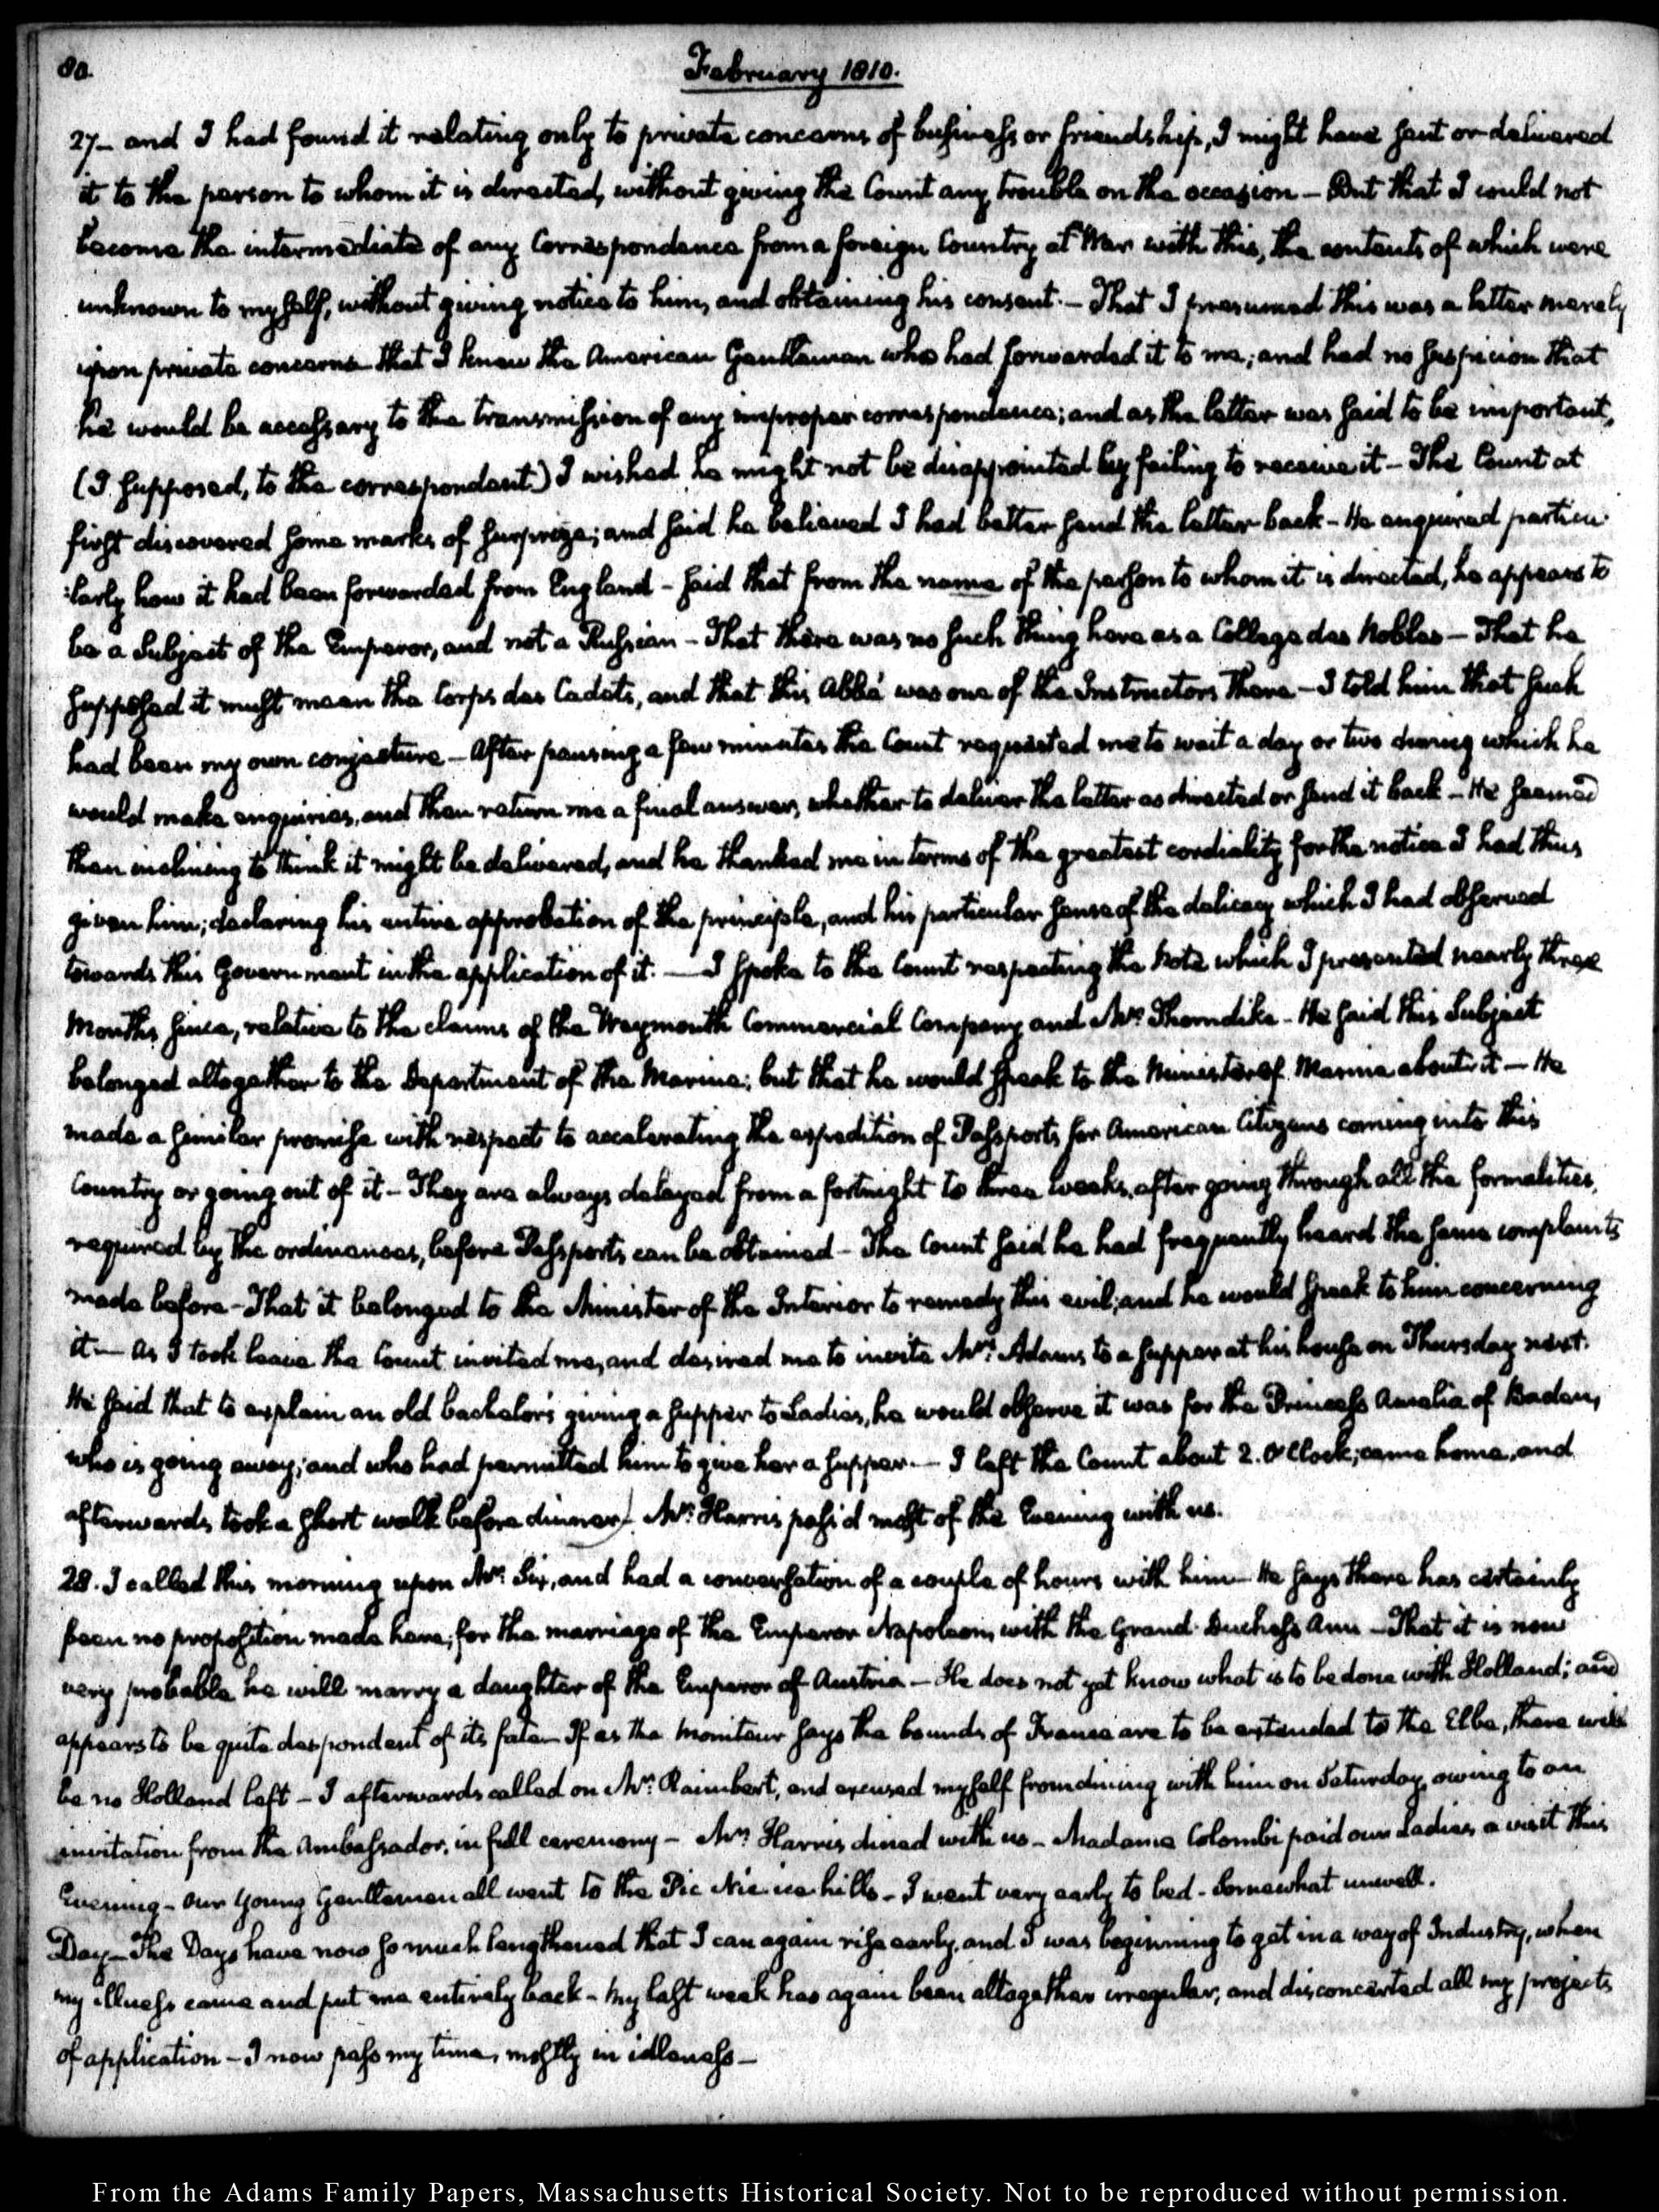 80.
February 1810.
27— and I had found it relating only to private concerns of business or friendship, I might have sent or delivered
it to the person to whom it is directed, without giving the Count any trouble on the occasion — But that I could not
become the intermediate of any Correspondence from a foreign Country at War with this, the contents of which were
unknown to myself, without giving notice to him, and obtaining his consent. — That I presumed this was a letter merely
upon private concerns— that I knew the American Gentleman who had forwarded it to me; and had no suspicion that
he would be accessary to the transmission of any improper correspondence; and as the letter was said to be important,
(I supposed, to the correspondent.) I wished he might not be disappointed by failing to receive it — The Count at
first discovered some marks of surprize; and said he believed I had better send the letter back — He enquired particu-
:larly how it had been forwarded from England — said that from the name of the person to whom it is directed, he appears to
be a Subject of the Emperor, and not a Russian — That there was no such thing here as a College des Nobles — That he
supposed it must mean the Corps des Cadets, and that this Abbé was one of the Instructors there — I told him that such
had been my own conjecture — After pausing a few minutes the Count requested me to wait a day or two during which he
would make enquiries, and then return me a final answer, whether to deliver the letter as directed or send it back — He seemed
then inclining to think it might be delivered, and he thanked me in terms of the greatest cordiality for the notice I had thus
given him; declaring his entire approbation of the principle, and his particular sense of the delicacy which I had observed
towards this Government in the application of it. — I spoke to the Count respecting the Note which I presented nearly three
Months since, relative to the claims of the Weymouth Commercial Company and Mr. Thorndike — He said this Subject
belonged altogether to the Department of the Marine; but that he would speak to the Minister of Marine about it — He
made a similar promise with respect to accelerating the expedition of Passports for American Citizens coming into this
Country or going out of it — They are always delayed from a fortnight to three weeks, after going through all the formalities,
required by the ordinances, before Passports can be obtained — The Count said he had frequently heard the same complaints
made before — That it belonged to the Minister of the Interior to remedy this evil; and he would speak to him concerning
it — As I took leave the Count invited me, and desired me to invite Mrs. Adams, to a supper at his house on Thursday next.
He said that to explain an old bachelor's giving a supper to Ladies, he would observe it was for the Princess Amelia of Baden,
who is going away; and who had permitted him to give her a supper. — I left the Count about 2. O'Clock; came home, and
afterwards took a short walk before dinner) Mr. Harris pass'd most of the Evening with us.
28. I called this morning upon Mr. Six, and had a conversation of a couple of hours with him — He says there has certainly
been no proposition made here, for the marriage of the Emperor Napoleon, with the Grand-Duchess Ann — That it is now
very probable he will marry a daughter of the Emperor of Austria — He does not yet know what is to be done with Holland; and
appears to be quite despondent of its fate — If as the Moniteur says the bounds of France are to be extended to the Elbe, there will
be no Holland left — I afterwards called on Mr. Raimbert, and excused myself from dining with him on Saturday, owing to an
invitation from the Ambassador, in full ceremony — Mr. Harris dined with us — Madame Colombi paid our Ladies a visit this
Evening — Our Young Gentlemen all went to the Pic Nic ice hills — I went very early to bed — Somewhat unwell.
Day — The Days have now so much lengthened that I can again rise early, and I was beginning to get in a way of Industry, when
my illness came and put me entirely back — My last week has again been altogether irregular, and disconcerted all my projects
of application — I now pass my time, mostly in idleness —
From the Adams Family Papers, Massachusetts Historical Society. Not to be reproduced without permission.